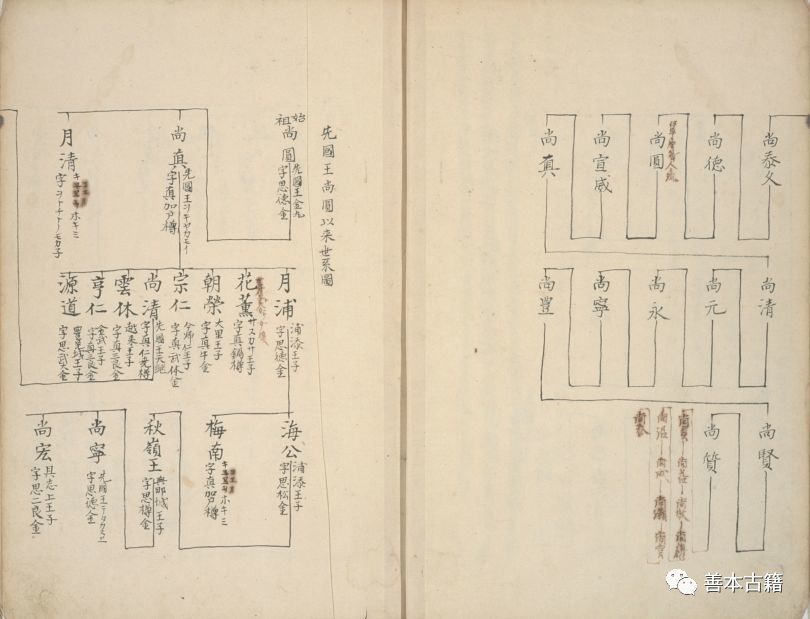 尚泰久
尚德
尚圓
尚宣威
尚真
尚清
尚元
尚永
尚寧
尚豊
尚賢
尚質
先國王尚圓以来世系圖
始祖
尚圓
先國王金丸
字思德金
尚真
字真加戸樽
月清
月浦
浦添王子
字思德金
花薫
サスカサ王子
字真鍋樽
朝榮
大里王子
字真牛金
宗仁
今帰仁王子
字真武休金
尚清
先國王天継
字真仁尭樽
雲休
越来王子
字真三良金
亨仁
金武王子
字真三良金
源道
豊見城王子
字思武太金
海公
浦添王子
字思松金
梅南
ホキミ
字真加戸樽
秋嶺王
與那城王子
字思樽金
尚寧
字思德金
尚宏
具志上王子
字思二良金
善本古籍